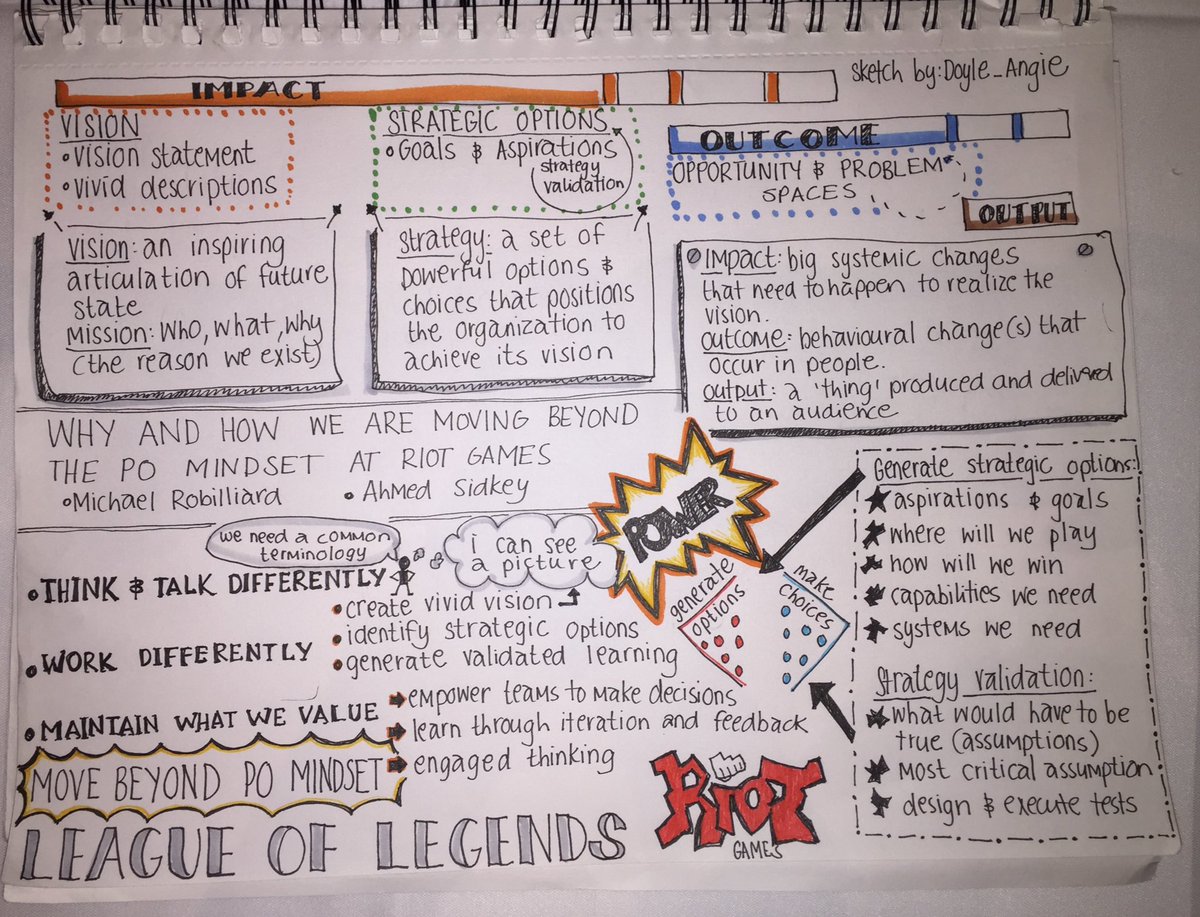 IMPACT
sketch by: Doyle_Angie
VISION
• Vision statement
• vivid descriptions
STRATEGIC OPTIONS
• Goals & Aspirations
strategy
validation
OUTCOME
OPPORTUNITY & PROBLEM
SPACES
OUTPUT
Vision: an inspiring
articulation of future
state
Mission: Who, what, why
(the reason we exist)
Strategy: a set of
powerful options &
choices that positions
the organization to
achieve its vision
Impact: big systemic changes
that need to happen to realize the
vision.
outcome: behavioural change(s) that
occur in people.
output: a 'thing' produced and delivered
to an audience
WHY AND HOW WE ARE MOVING BEYOND
THE PO MINDSET AT RIOT GAMES
• Michael Robilliard • Ahmed Sidkey
we need a common
terminology
i can see
a picture
POWER
• THINK & TALK DIFFERENTLY
• create vivid vision
• identify strategic options
• generate validated learning
• WORK DIFFERENTLY
• MAINTAIN WHAT WE VALUE
empower teams to make decisions
learn through iteration and feedback
engaged thinking
MOVE BEYOND PO MINDSET
LEAGUE OF LEGENDS
generate
options
make
choices
RIOT
GAMES
Generate strategic options:
★ aspirations & goals
★ where will we play
★ how will we win
★ capabilities we need
★ systems we need
Strategy validation:
★ what would have to be
true (assumptions)
★ most critical assumption
★ design & execute tests